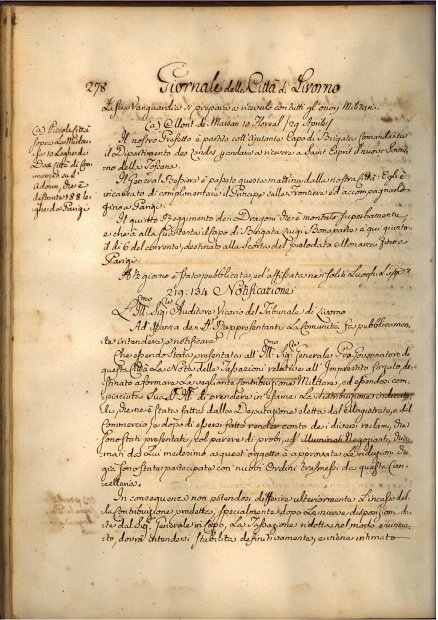 278
Giornale della Città di Livorno
La sua Vanguardia si prepara a riceverlo con tutti gl'onori Militari.
(a) Mont de Marsan 10 Floreal / 29 Aprile /
(a) Piccola Città
Il nostro Prefetto è partito coll'Ajutante Capo di Brigata Comandante
il Dipartimento des Landes, andare a ricevere a Saint Esprit il nuovo Sovra-
no della Toscana.
distante 188 le-
ghe da Parigi
Il General è passato questa mattina dalla nostra Città: Egli è
incaricato di complimentare il Principe sulla Frontiera ed accompagnarlo
fino a Parigi.
Il quinto Reggimento dei Dragoni che è montato superbamente,
e che à alla sua testa il Capo di Brigata Luigi Bonaparte è qui giunto
il dì 6 del corrente, destinato alla scorta del prelodato Monarca fino a
Parigi.
A giorno è stato pubblicata, ed affissata nei soliti Luoghi
219: 134 Notificazione
L' Sig: Auditore Vicario del Tribunale di Livorno
Ad Istanza de' Rappresentanti La Comunità fa pubblicamen-
te intendere, e notificare
Che essendo stata presentata all' Sig: Generale Governatore di
questa Città La Nota delle Tassazioni relative all' Imprestito forzato, de-
stinato a formare La vegliante Contribuzione Militare, ed essendosi com-
piaciuta di prendere in esame La distribuzione indicata,
che ne è stata fatta dalla Deputazione eletta dal Magistrato, e dal
Commercio dopo di essersi fatto render conto dei diversi reclami, che
sono stati presentati, col parere di probi, ed illuminati Negozianti, chia-
mati da Lui medesimo a quest'oggetto à approvato Le riduzioni che
già sono state partecipate con nuovi Ordini trasmessi da questa Can-
celleria.
In conseguenza non potendosi differire ulteriormente L'incasso del-
la Contribuzione predetta, specialmente dopo Le nuove disposizioni da-
te dal Sig: Generale in Capo, La Tassazione ridotta nel modo enuncia-
to, dovrà intendersi stabilita definitivamente, e viene intimato